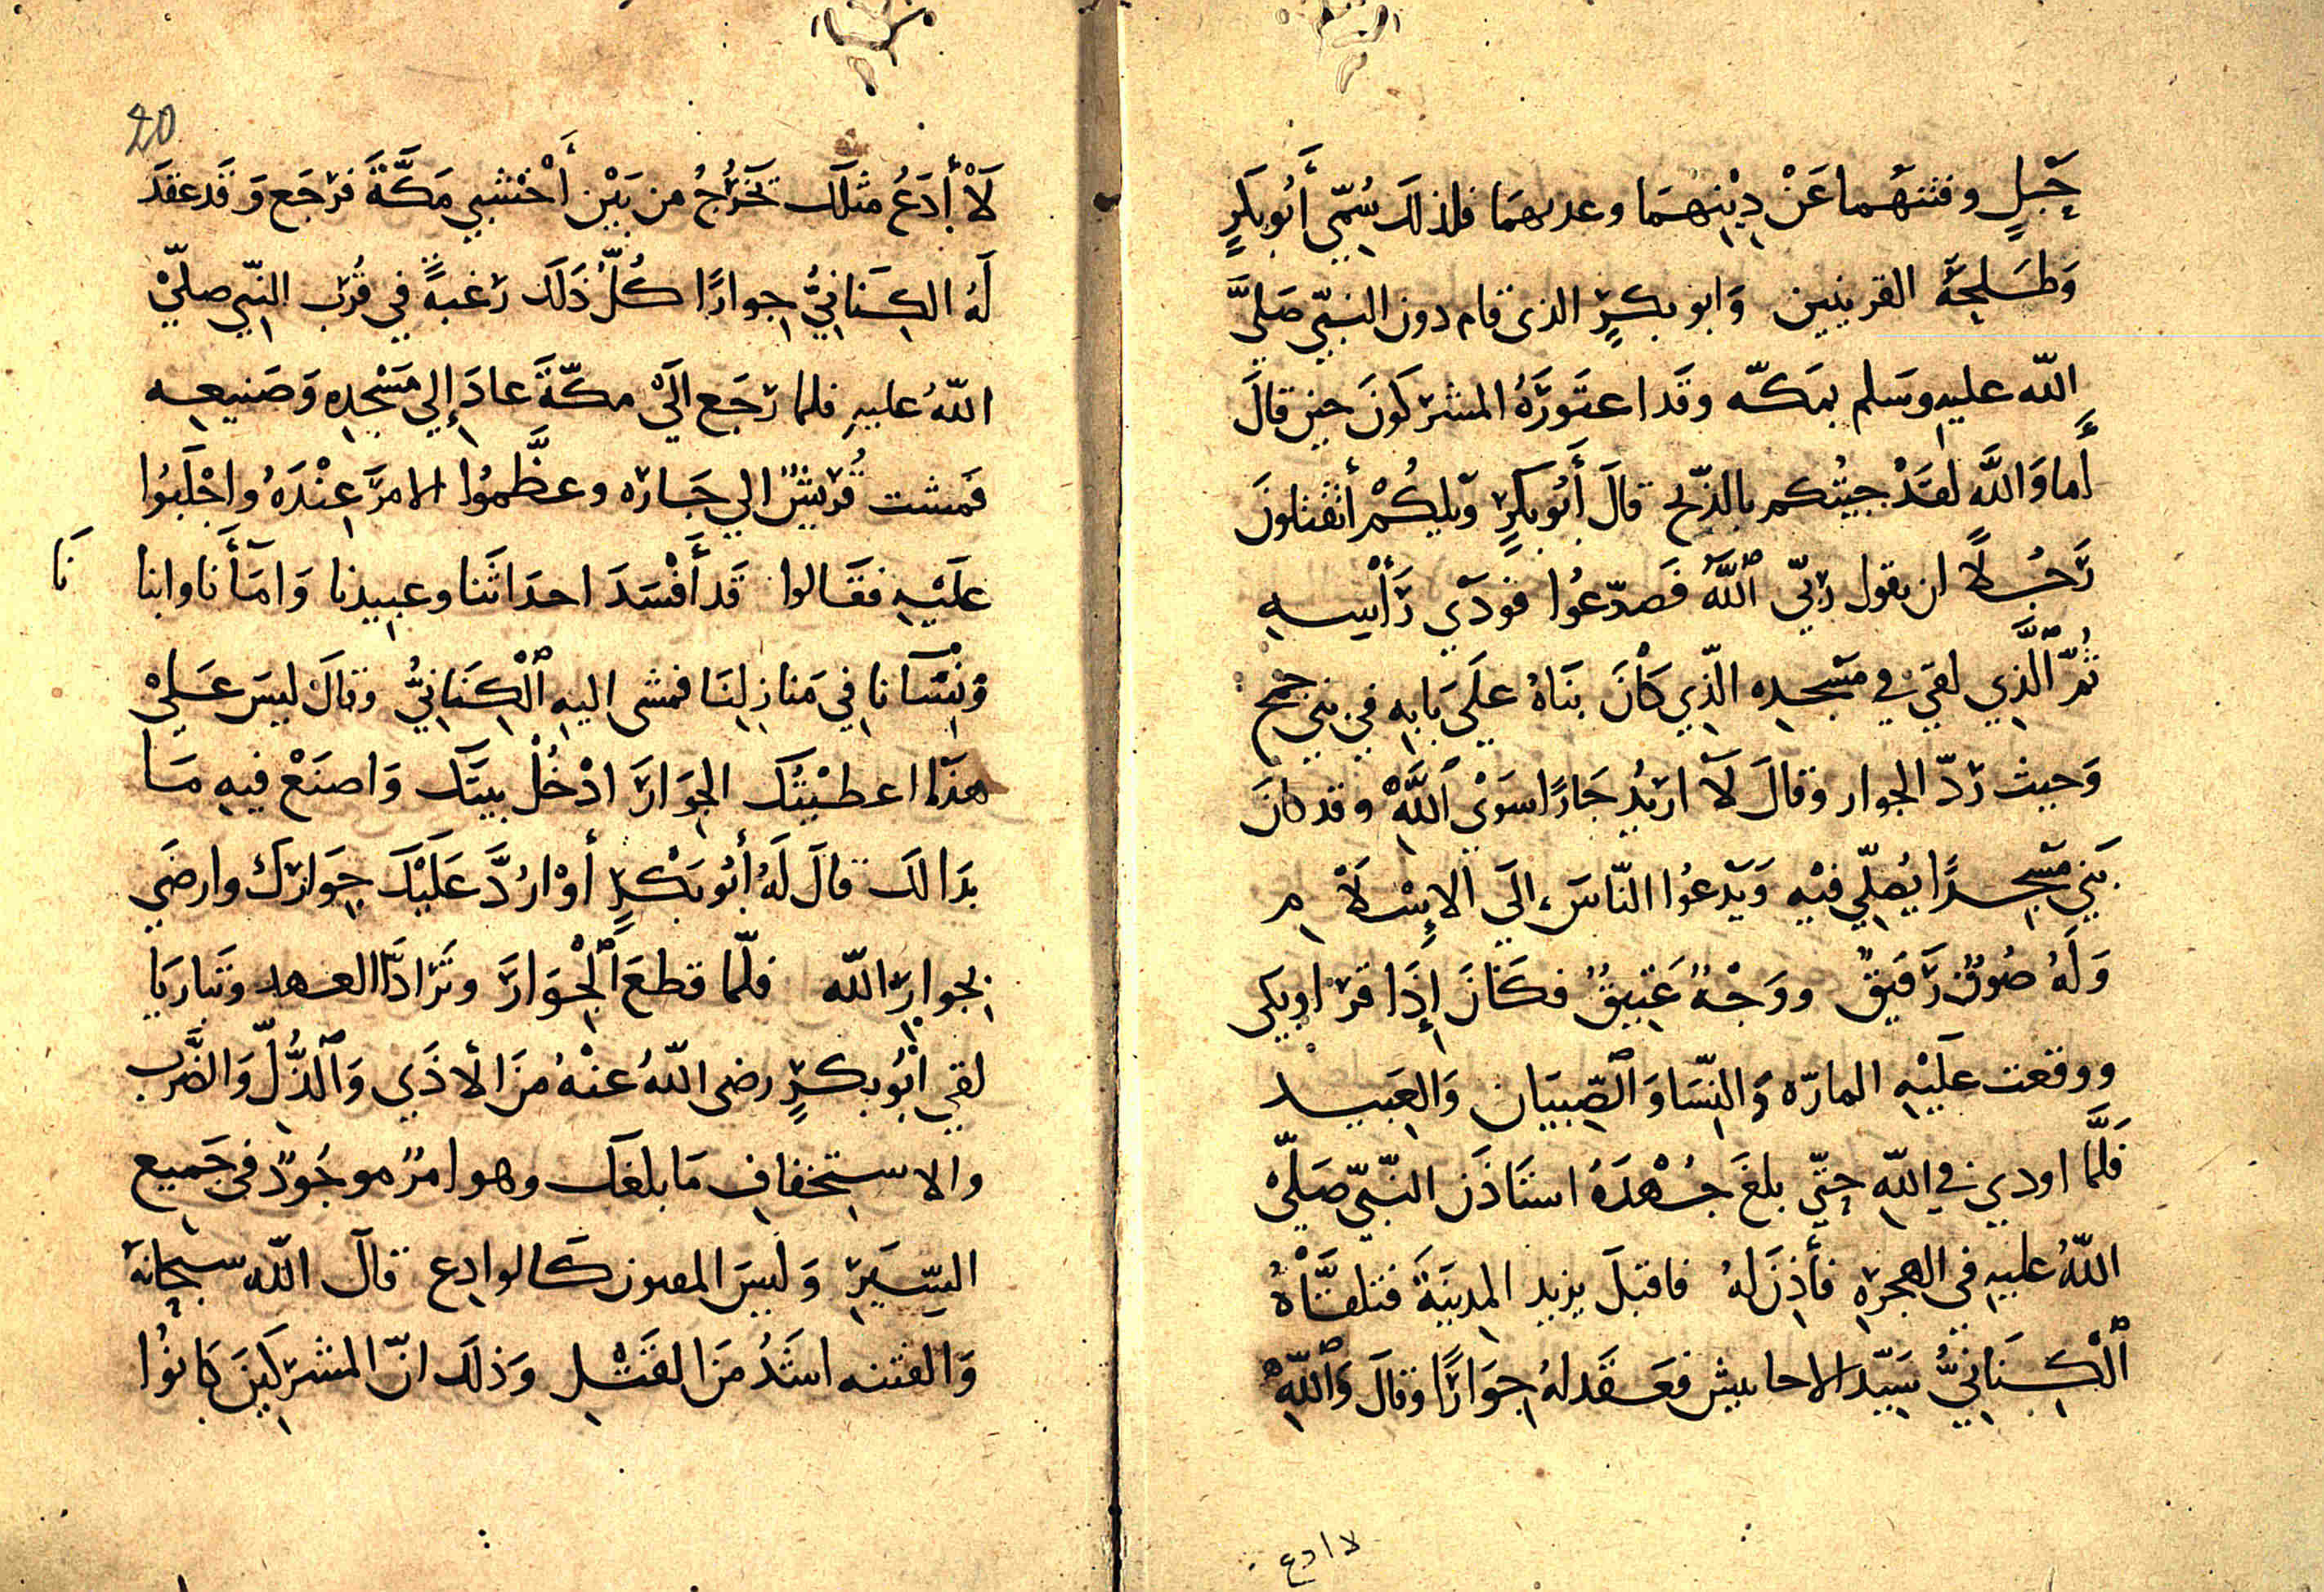 حَبلٍ وفتنهما عَنْ دِيْنِهِمَا وعدبهمَا فلذلك سُمِّيَ أَبُو بَكرٍ
وَطَلحَةَ القرينين وَابو بكرٍ الذى قام دون النبيّ صَلىَّ
اللّه عليهِ وسَلم بمَكّه وقَد اعتَورَهُ المشركونَ حين قالَ
أَما وَاللَّه لَقَدْ جيتُكم بالذّبح قالَ أَبُو بكرٍ ويلكُمْ أتقتلونَ
رَجُلاً ان يقول ربّيَ ٱللَّهُ فَصدّعُوا فودَي رَأْسِهِ
ثُمَّ ٱلَّذِي لقيَ في مَسْجدِه الّذِي كَانَ بنَاهُ علَى بَابِهِ في بني جمح
وَحيث ردّ الجوار وَقالَ لَا اريدُ جَارًا سوَيْ ٱللَّهْ وقد كانَ
بَنيَ مَسْجِدًا يُصلّي فيْهِ وَيَدعُوا النّاسَ الَى الاِسْلَامِ
وَلَهُ صُوتٌ رَقيقٌ ووَجْهٌ عَتِيقٌ فكَانَ إِذَا قرَا وبكى
ووقعت علَيْهِ المارّه وَالنِّسَا وَٱلصِّبيَان وَالعَبيد
فَلَمَّا اودي في اللّهِ حتّى بلغَ جُهْدَهُ استَاذَن النّبيّ صَلىّ
اللّهُ عليهِ في الهجرَهِ فأَذِنَ لهُ فاقبلَ يريد المدينَةَ فتلقّاْهُ
ٱلْكِنَانيُّ سَيّد الاحابيش فعَقَد لهُ جِوَارًا وَقالَ وَٱللّهِ
لا ادع
20
لَاْ أَدَعُ مثلَك تخَرُجُ من بَيْن أَخْشبي مَكَّةَ فرجَع وَقَد عقدَ
لَهُ الكِنَانيُّ جوارًا كُلُّ ذَلَك رَغبةً في قُرب النّبي صلىّ
اللّهُ عليهِ فلما رَجَع الَيْ مكّةَ عادَ إِلي مَسْجِدِه وَصَنيعِه
فَمشت قُريشٌ الي جَارِه وعظَّموُا الامرَ عِنْدَهُ واجْلَبُوا
علَيْهِ فقَالوا قَد أَفْسَدَ احدَاثَنا وعبيدنا وَامَأنا وابنا
نَا
وَنِسَآنا في مَنازِلنَا فمشى اليهِ ٱلْكِنَانيُّ وقالَ ليسَ عَليْ
هذَا اعطيْتُك الجوَارَ ادْخُلْ بيتَك وَاصنَعْ فيهِ مَا
بدَا لَك قالَ لَهُ أَبُو بَكْرٍ أَوْ اردَّ عَلَيْكَ جِوَارَك وارضَي
بجوارِ اللّه فلمّا قطعَ ٱلْجِوَارَ وتَرادَّا العهد وتَبارَيَا
لقي ابُو بكرٍ رضى اللّهُ عنْهُ منَ الأذَي وَٱلذُّلِّ وَالضّرب
والاستخفافِ مَا بلغَك وهو امرٌ موجُودٌ في جَميع
السِّيَرِ وَليسَ المفتون كَالوادِع قالَ اللّه سبحانَهُ
وَالفتنه اشَدُ منَ القَتْلِ وَذلَك انّ المشرِكينَ كَانُوا